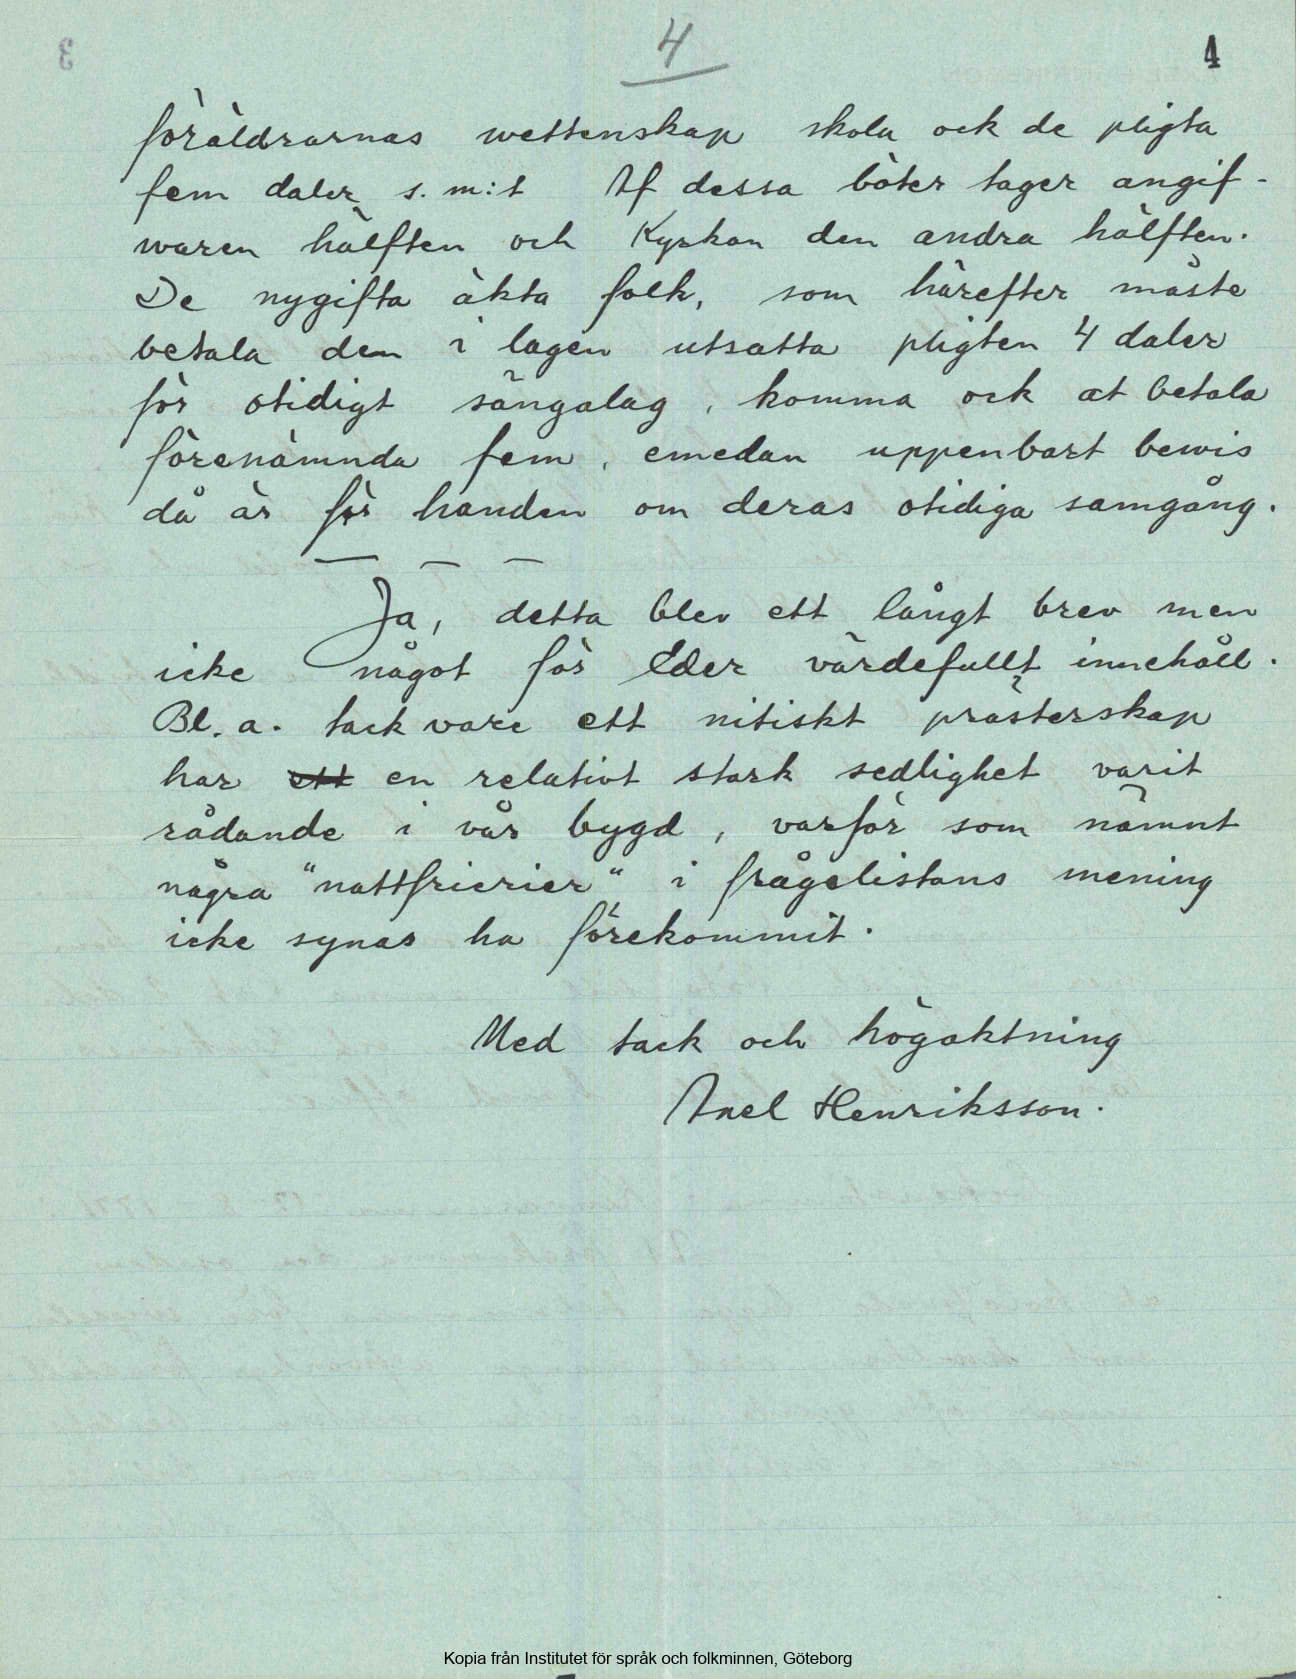 4
4
föräldrarnas wettenskap skola ock de pligta
fem daler s. m:t Af dessa böter tager angif-
waren hälften och Kyrkan den andra hälften.
De nygifta äkta folk, som härefter måste
betala den i lagen utsatta pligten 4 daler
för otidigt sängalag, komma ock at betala
förenämnda fem, emedan uppenbart bewis
då är för handen om deras otidiga samgång.
— — —
Ja, detta blev ett långt brev men
icke något för Eder värdefullt innehåll.
Bl. a. tack vare ett nitiskt prästerskap
har ett en relativt stark sedlighet varit
rådande i vår bygd, varför som nämnt
några "nattfrierier" i frågelistans mening
icke synas ha förekommit.
Med tack och högaktning
Axel Henriksson.
Kopia från Institutet för språk och folkminnen, Göteborg